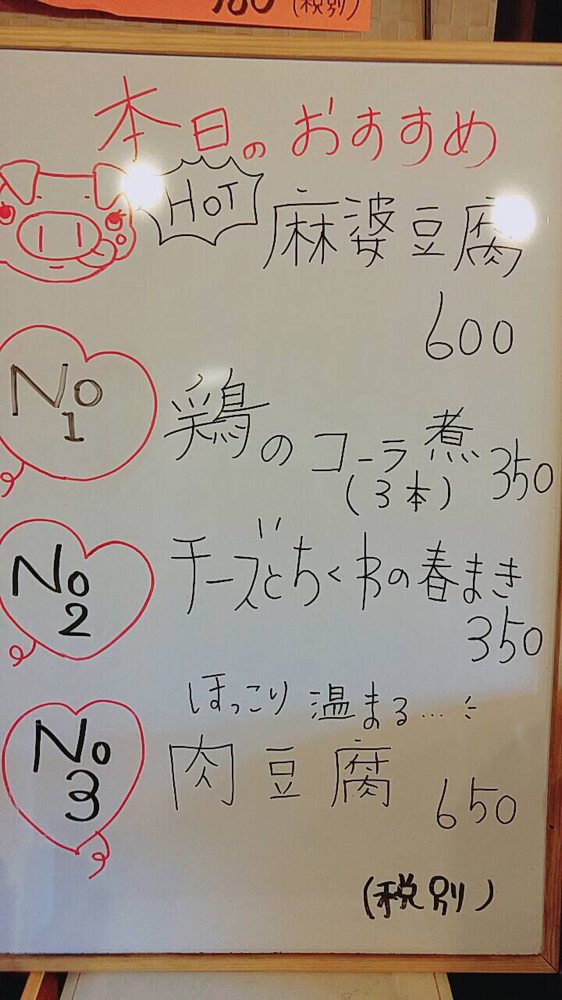 (税別)
本日のおすすめ
HOT
麻婆豆腐
600
No1
鶏のコーラ煮
(3本)
350
No2
チーズとちくわの春まき
350
No3
ほっこり温まる…
肉豆腐
650
(税別)